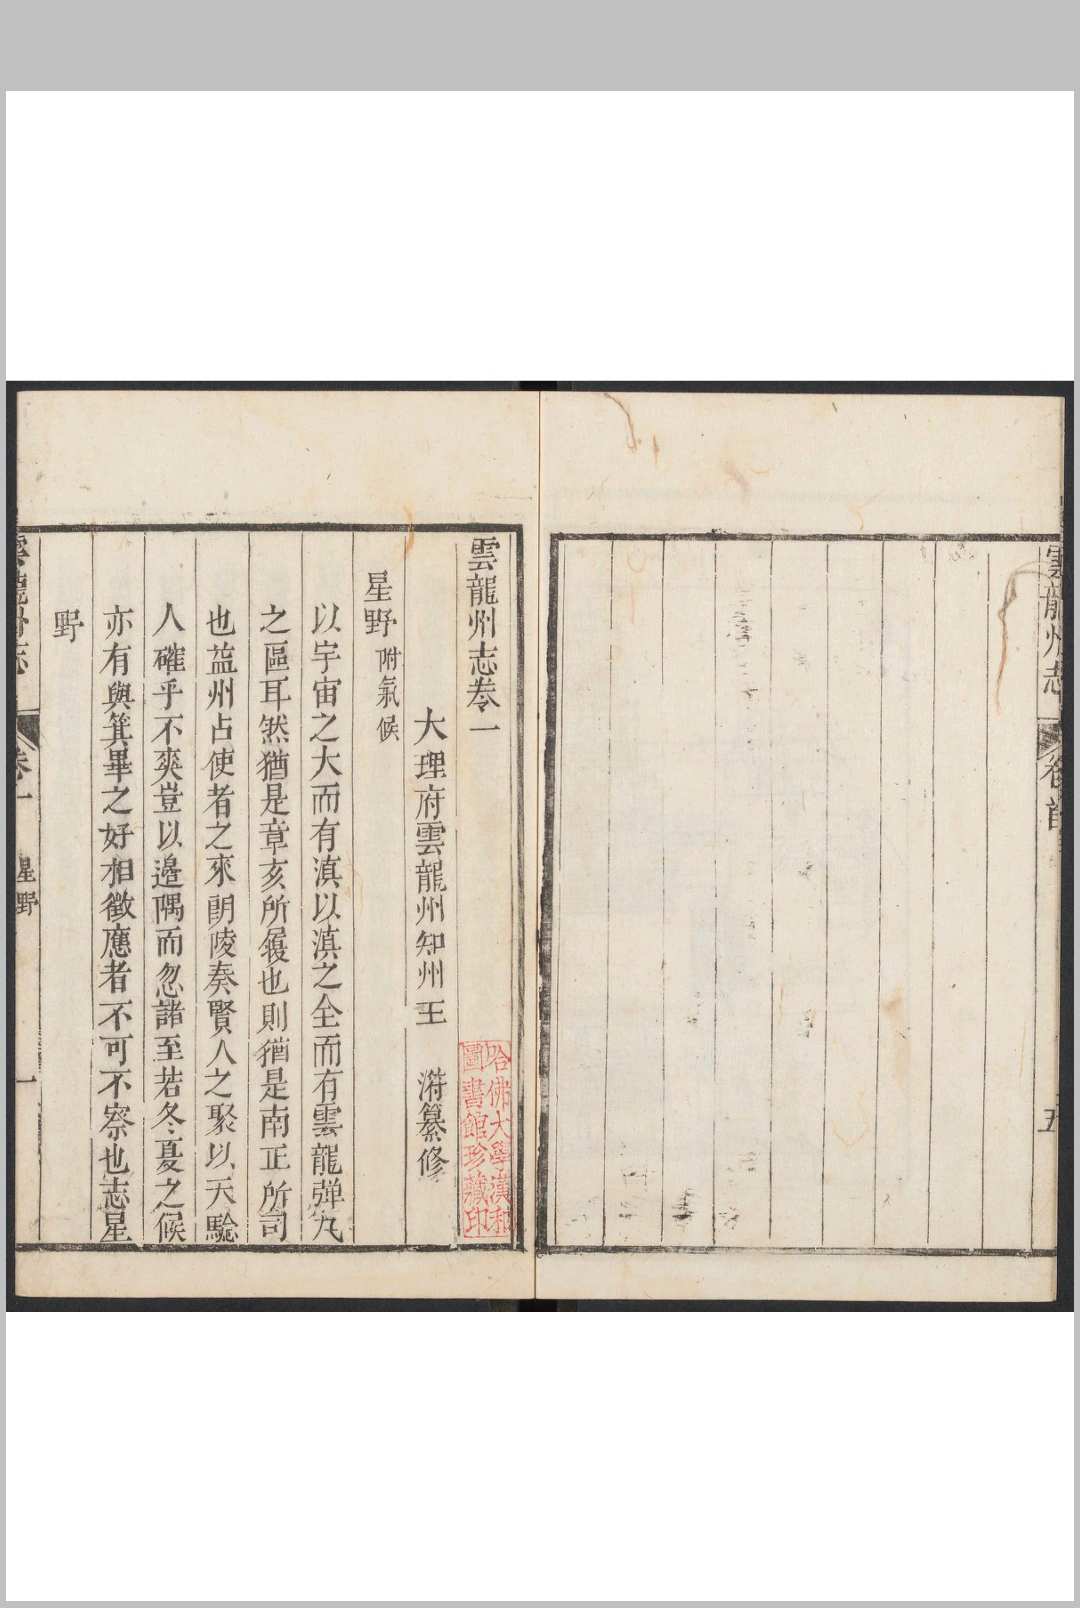 雲龍州志
卷首
五
雲龍州志卷一
大理府雲龍州知州王　𣻌纂修
星野附氣候
以宇宙之大而有滇以滇之全而有雲龍弹丸
之區耳然猶是章亥所履也則猶是南正所司
也益州占使者之來朗陵奏賢人之聚以天驗
人確乎不爽豈以邊隅而忽諸至若冬夏之候
亦有與箕畢之好相徵應者不可不察也志星
野
雲龍州志
卷一
星野
一
哈佛大學漢和
圖書館珍藏印